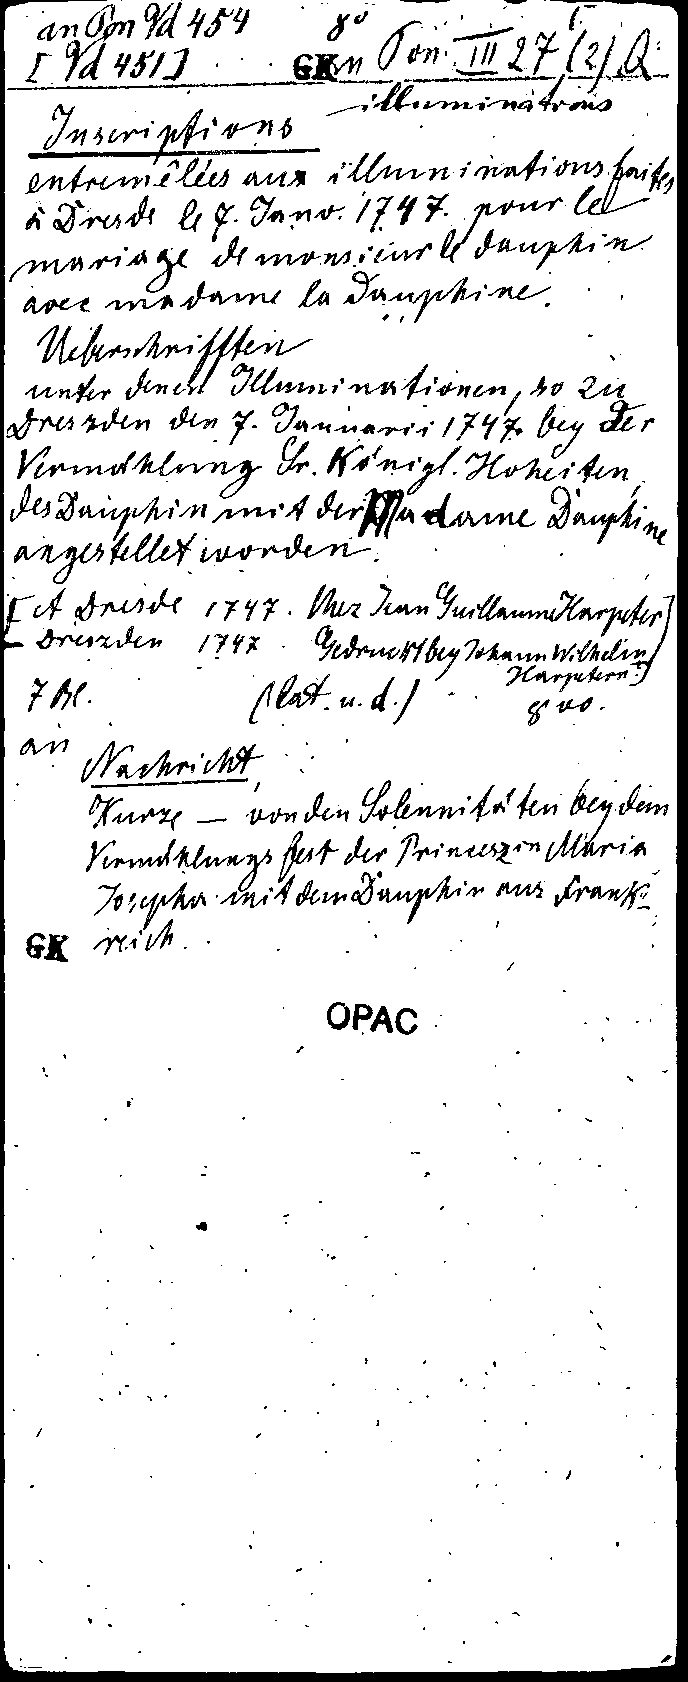 an Pon Vd 454 8°
[Vd 451] GK n Pon. III 27 (2) Q
illuminations
Inscriptions
entremêlées aux illuminations faites
à Dresde le 7. Janv. 1747. pour le
mariage de monsieur le dauphin
avec madame la Dauphine.
Ueberschrifften
unter denen Illuminationen, so zu
Dreszden den 7. Januarii 1747. bey der
Vermählung Sr. Königl. Hoheiten
des Dauphin mit der Madame Dauphine
angestellet worden.
[A Dresde 1747. Chez Jean Guillaume Harpeter]
Dreszden 1747. Gedruckt bey Johann Wilhelm
Harpetern.]
7 Bl. (Lat. u. d.) 8vo.
an
Nachricht,
Kurze — von den Solennitäten bey dem
Vermählungs fest der Princeszin Maria
Josepha mit dem Dauphin aus Frank-
GK reich.
OPAC